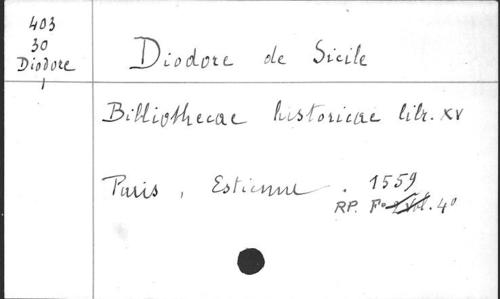 403
30
Diodore
1
Diodore de Sicile
Bibliothecae historicae libr. XV
Paris, Estienne. 1559
RP. F° 4°